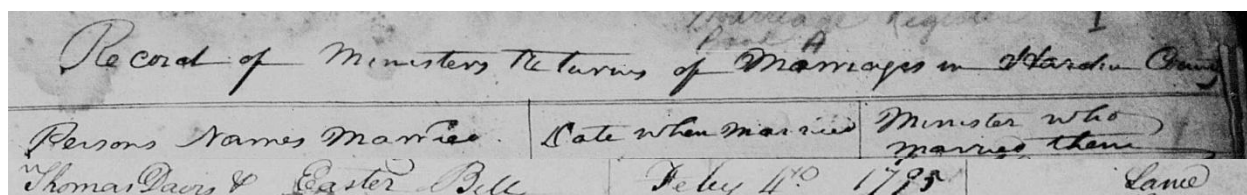 Marriage Register 1
Book A
Record of Ministers Returns of Marriages in Hardin County
Persons Names Married. Date when married Minister who
married them
Thomas Davis & Easter Bell Feby 4th 1795 Same